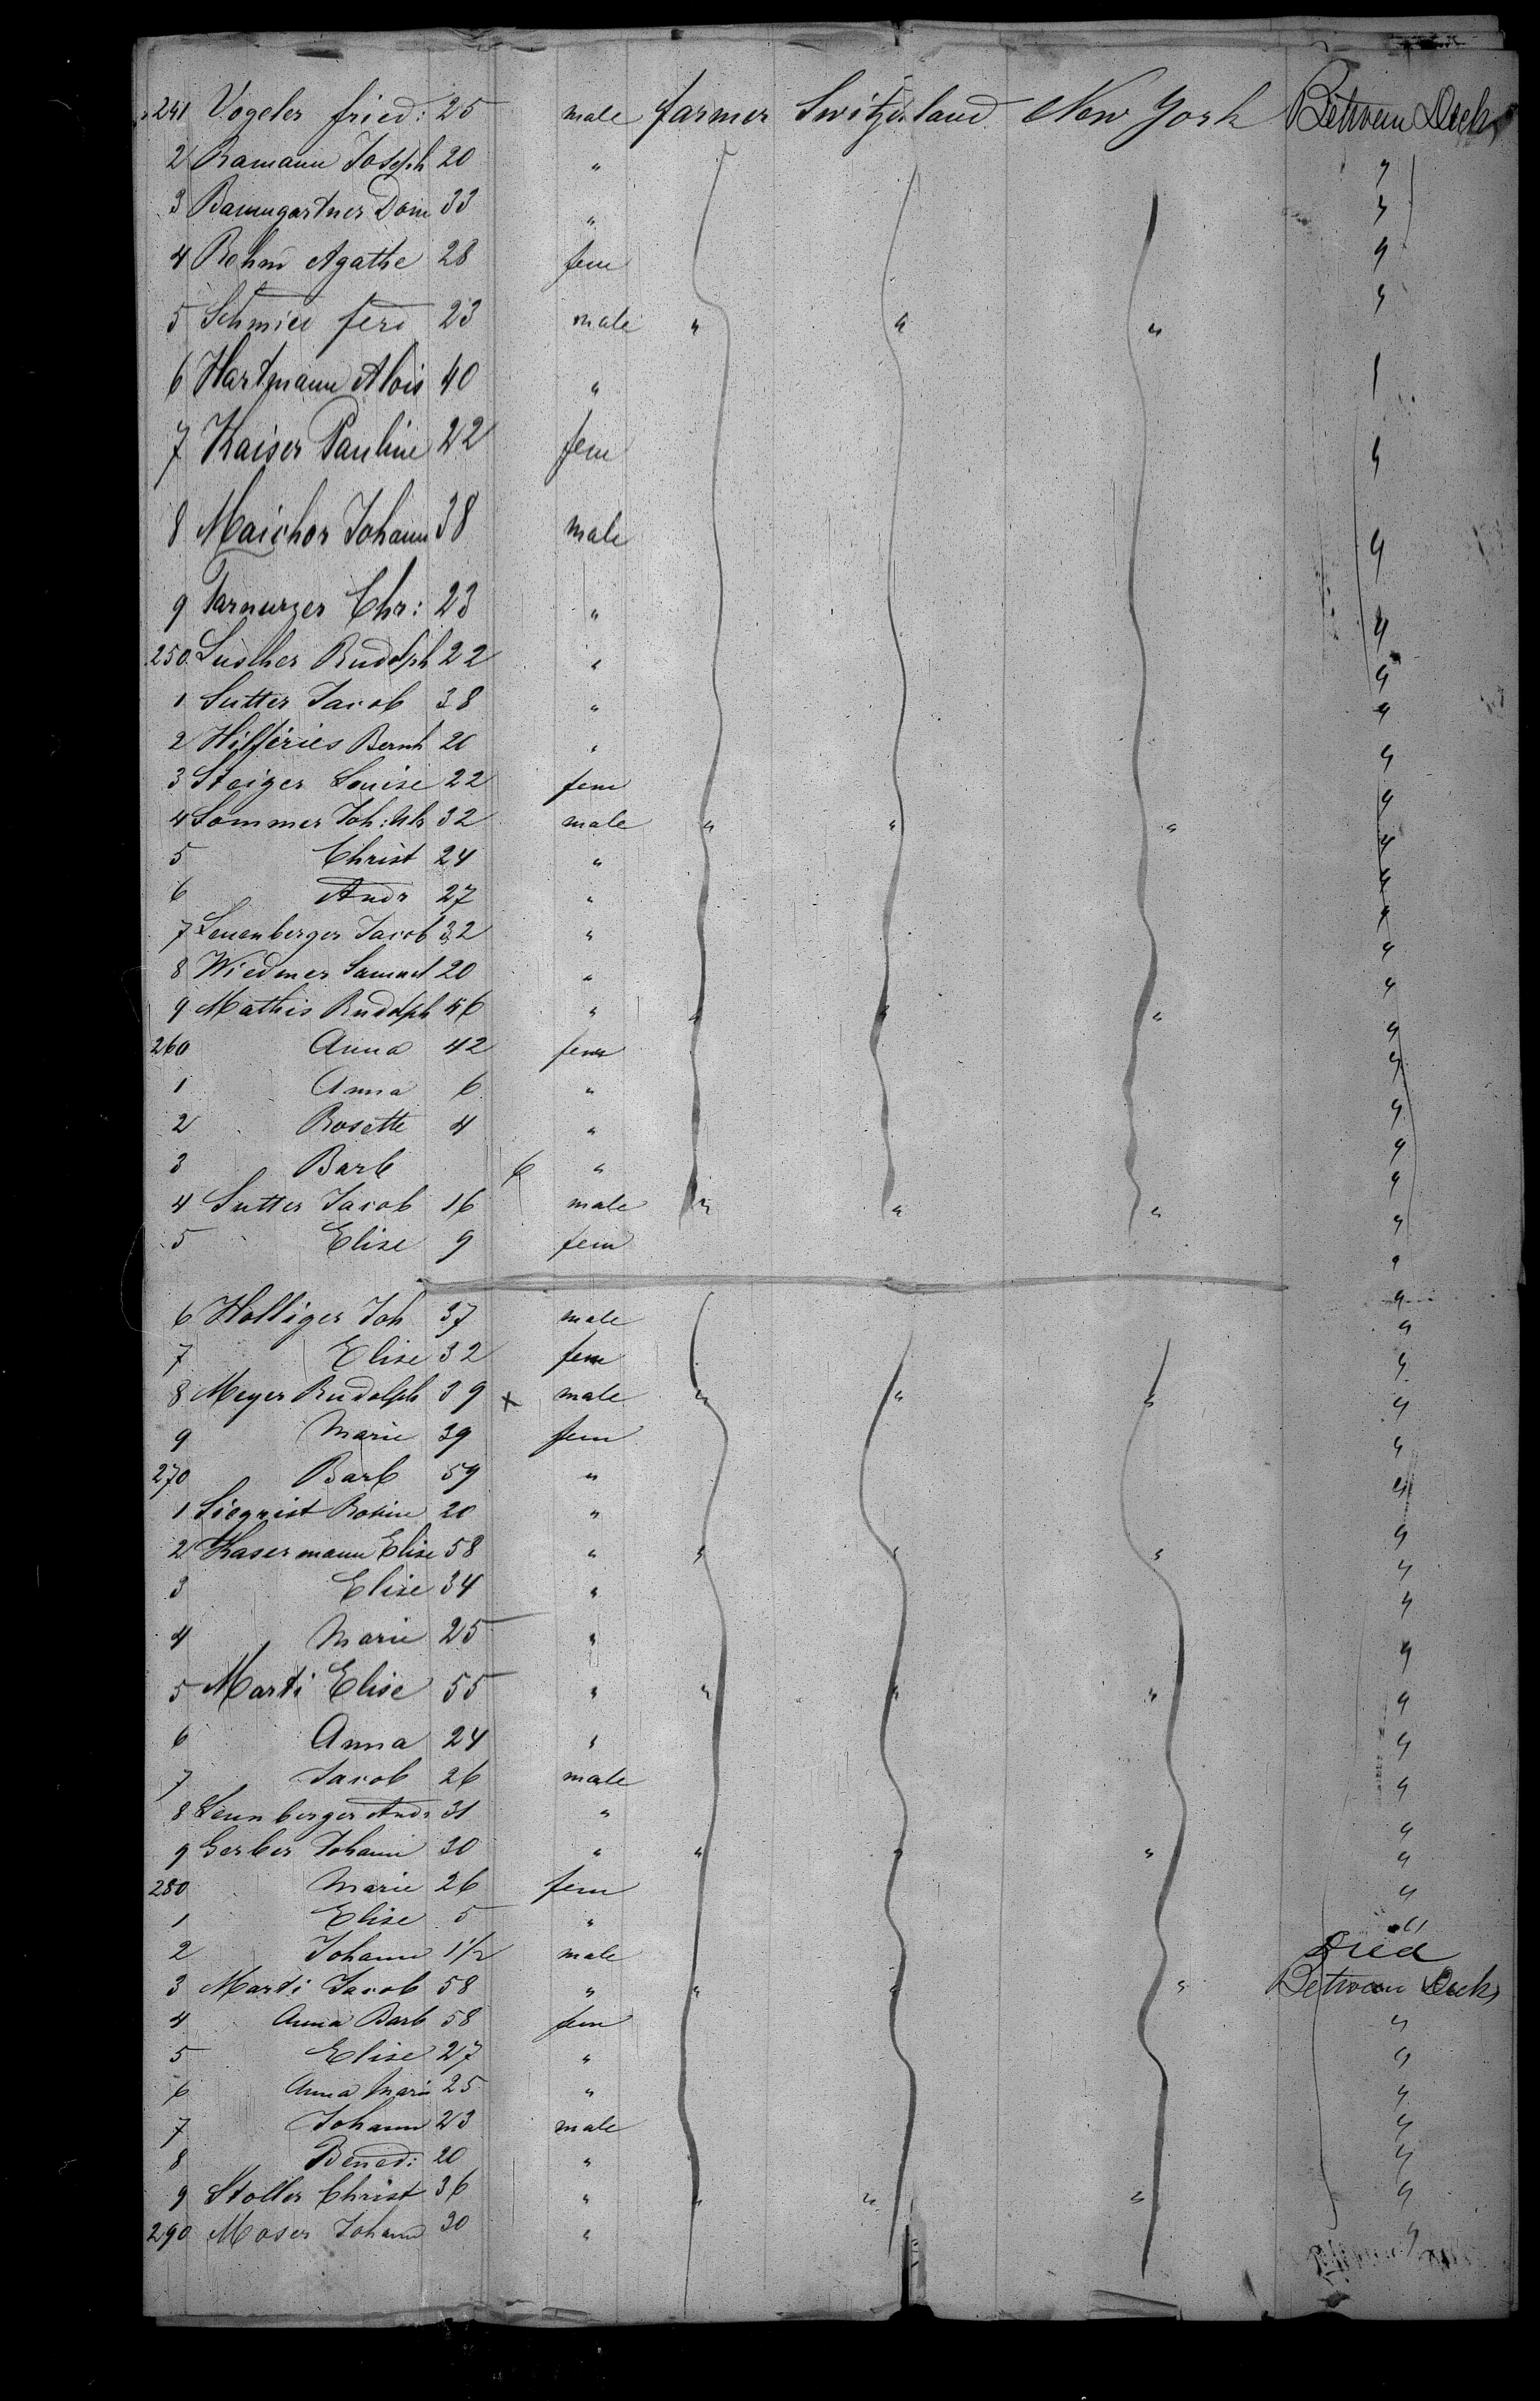 241 Vogeler fried: 25 male farmer Switzerland New York Between Decks
2 Ramann Joseph 20 " "
3 Baumgartner Dom 33 " "
4 Rohm Agathe 28 fem "
5 Schmied ferd 23 male " " " "
6 Hartmann Alois 40 "
7 Kaiser Pauline 22 fem "
8 Maichor Johann 38 male "
9 Tarnurzer Chr: 23 " "
250 Luscher Rudolph 22 " "
1 Sutter Jacob 38 " "
2 Bernh 20 " "
3 Steiger Louise 22 fem "
4 Sommer Joh: Ulr 32 male " " " "
5 Christ 24 " "
6 Andr 27 " "
7 Leuenberger Jacob 32 " "
8 Wiedmer Samuel 20 " "
9 Mathis Rudolph 46 " " " " "
260 Anna 42 fem "
1 Anna 6 " "
2 Rosette 4 " "
3 Barb 6 " "
4 Sutter Jacob 16 male " " " "
5 Elise 9 fem "
6 Holliger Joh 37 male "
7 Elise 32 fem "
8 Meyer Rudolph 39 x male " " " "
9 Marie 39 fem "
270 Barb 59 " "
1 Siegrist Rosine 20 " "
2 Kasermann Elise 58 " " " " "
3 Elise 34 " "
4 Marie 25 " "
5 Marti Elise 55 " " " " "
6 Anna 24 " "
7 Jacob 26 male "
8 Leunberger Andr 31 " "
9 Gerber Johann 30 " " " " "
280 Marie 26 fem "
1 Elise 5 " "
2 Johann 1 1/2 male Died
3 Marti Jacob 58 " " " " Between Decks
4 Anna Barb 58 fem "
5 Elise 27 " "
6 Anna Mari 25 " "
7 Johann 23 male "
8 Bened: 20 " "
9 Stoller Christ 36 " " " " "
290 Moser Johann 30 " "